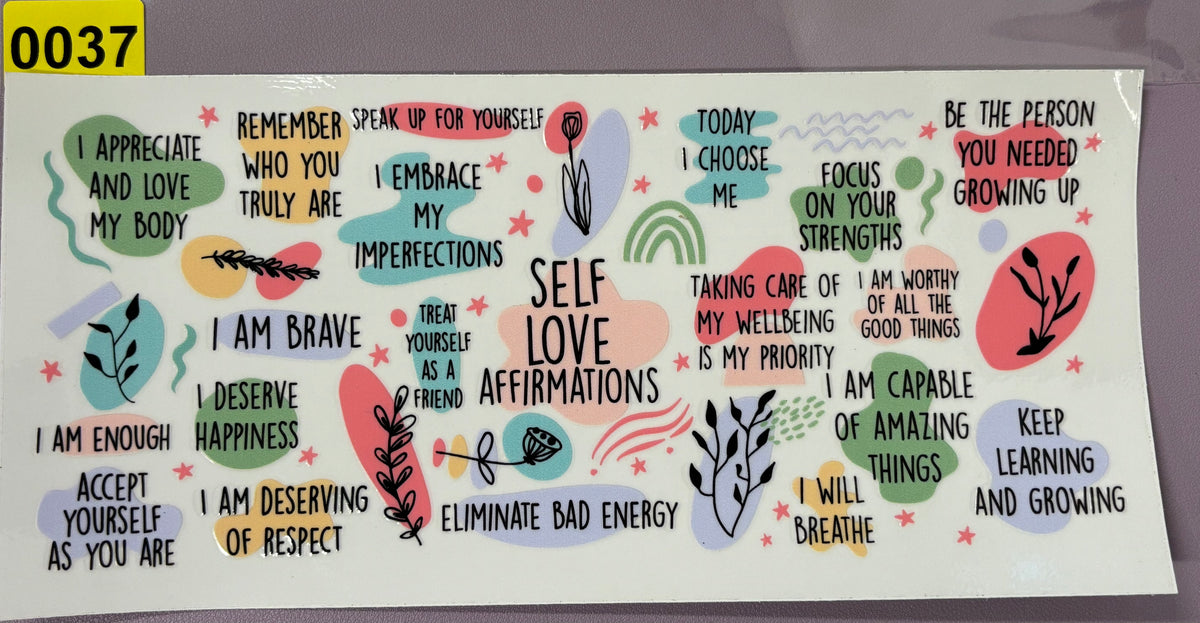 0037
I APPRECIATE
AND LOVE
MY BODY
REMEMBER
WHO YOU
TRULY ARE
SPEAK UP FOR YOURSELF
I EMBRACE
MY
IMPERFECTIONS
TODAY
I CHOOSE
ME
FOCUS
ON YOUR
STRENGTHS
BE THE PERSON
YOU NEEDED
GROWING UP
SELF
LOVE
AFFIRMATIONS
TAKING CARE OF
MY WELLBEING
IS MY PRIORITY
I AM WORTHY
OF ALL THE
GOOD THINGS
I AM BRAVE
TREAT
YOURSELF
AS A
FRIEND
I DESERVE
HAPPINESS
I AM ENOUGH
I AM CAPABLE
OF AMAZING
THINGS
KEEP
LEARNING
AND GROWING
ACCEPT
YOURSELF
AS YOU ARE
I AM DESERVING
OF RESPECT
ELIMINATE BAD ENERGY
I WILL
BREATHE